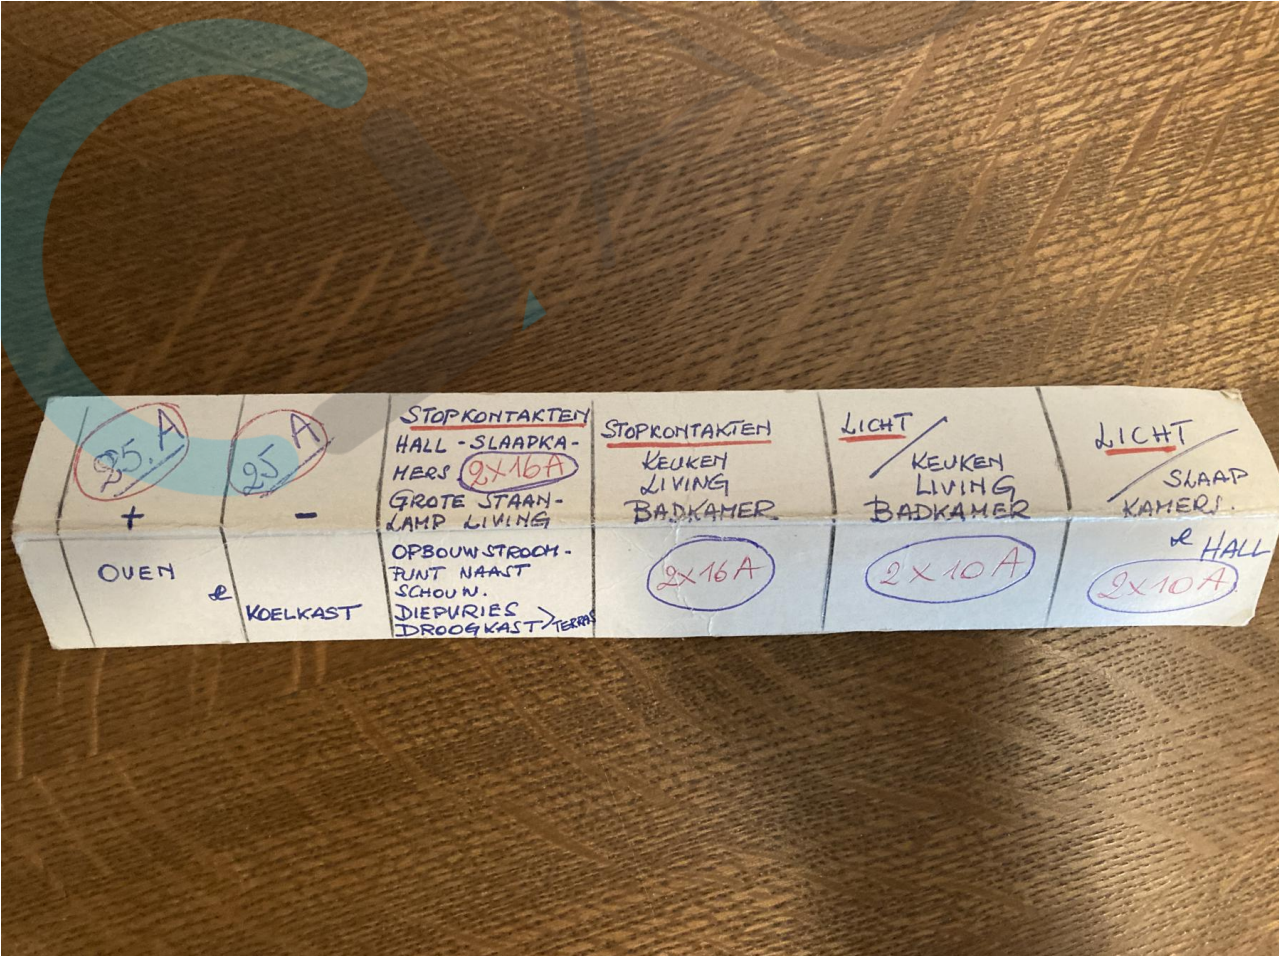 25.A
+
OVEN
&
25 A
-
KOELKAST
STOPKONTAKTEN
HALL - SLAAPKA-
MERS 2X16A
GROTE STAAN-
LAMP LIVING
OPBOUWSTROOM-
PUNT NAAST
SCHOUW.
DIEPVRIES
DROOGKAST > TERRAS
STOPKONTAKTEN
KEUKEN
LIVING
BADKAMER
2X16A
LICHT /
KEUKEN
LIVING
BADKAMER
2X10A
LICHT /
SLAAP
KAMERS.
& HALL
2X10A